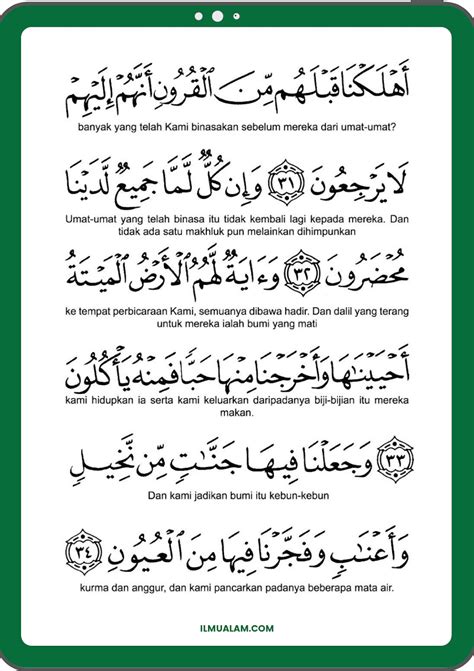 أَهْلَكْنَا قَبْلَهُم مِّنَ الْقُرُونِ أَنَّهُمْ إِلَيْهِمْ
banyak yang telah Kami binasakan sebelum mereka dari umat-umat?
لَا يَرْجِعُونَ ٣١ وَإِن كُلٌّ لَّمَّا جَمِيعٌ لَّدَيْنَا
Umat-umat yang telah binasa itu tidak kembali lagi kepada mereka. Dan
tidak ada satu makhluk pun melainkan dihimpunkan
مُحْضَرُونَ ٣٢ وَءَايَةٌ لَّهُمُ الْأَرْضُ الْمَيْتَةُ
ke tempat perbicaraan Kami, semuanya dibawa hadir. Dan dalil yang terang
untuk mereka ialah bumi yang mati
أَحْيَيْنَٰهَا وَأَخْرَجْنَا مِنْهَا حَبًّا فَمِنْهُ يَأْكُلُونَ
kami hidupkan ia serta kami keluarkan daripadanya biji-bijian itu mereka
makan.
٣٣ وَجَعَلْنَا فِيهَا جَنَّٰتٍ مِّن نَّخِيلٍ
Dan kami jadikan bumi itu kebun-kebun
وَأَعْنَٰبٍ وَفَجَّرْنَا فِيهَا مِنَ الْعُيُونِ ٣٤
kurma dan anggur, dan kami pancarkan padanya beberapa mata air.
ILMUALAM.COM